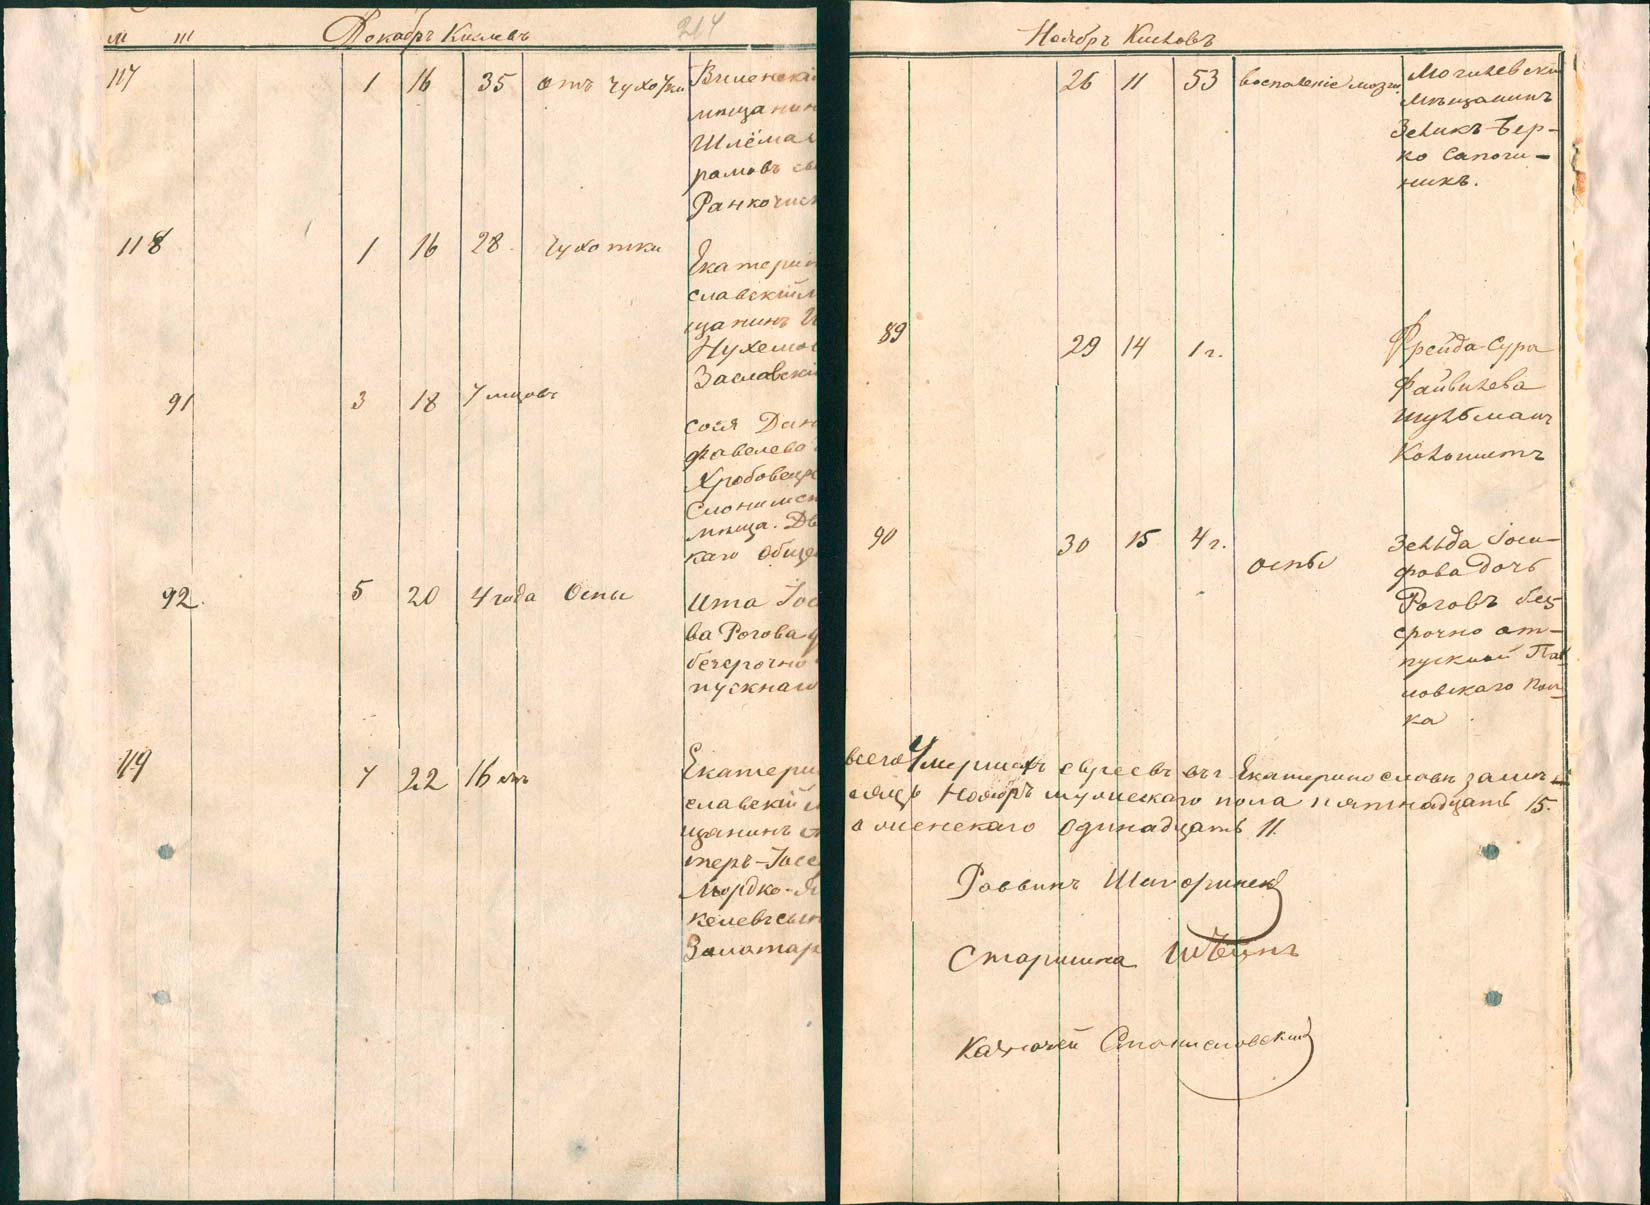 м ж Декабрь Кислевъ 214
117 1 16 35 отъ чухотки Виленскі
мѣщанин
Шлёма А
рамовъ сы
Ранкочис
118 1 16 28 Чухотки Екатерин
славскій м
щанинъ И
Нухемов
Заславскі
91 3 18 7 мцовъ
Сося Дин
файвелева
Хробовецк
Слонимск
мѣща. Дв
каго обще
92. 5 20 4 года Оспы Ита Іос
ва Рогова
безсрочно
пускнаго
119 7 22 16 лѣтъ Екатери
славскій м
щанинъ
теръ-Іосе
Мордко-Я
келевъ сын
Золотар
Ноябрь Кислевъ
26 11 53 воспаленіе мозга Могилевскій
Мѣщанинъ
Зеликъ-Бер-
ко Сапож-
никъ.
89 29 14 1 г. Фрейда-Сура
Файвилева
Шульманъ
Колонистъ
90 30 15 4 г. оспы Зельда Іоси-
фова дочь
Роговъ без-
срочно от-
пускной Пав
ловскаго Пол-
ка
всего Умершихъ евреевъ въ г. Екатеринославѣ за мѣ-
сяцъ Ноябрь мужескаго пола пятнадцать 15.
а женскаго одинадцать 11.
Раввинъ Шагоринск
Старшина Штейнъ
Казначей Станиславскій